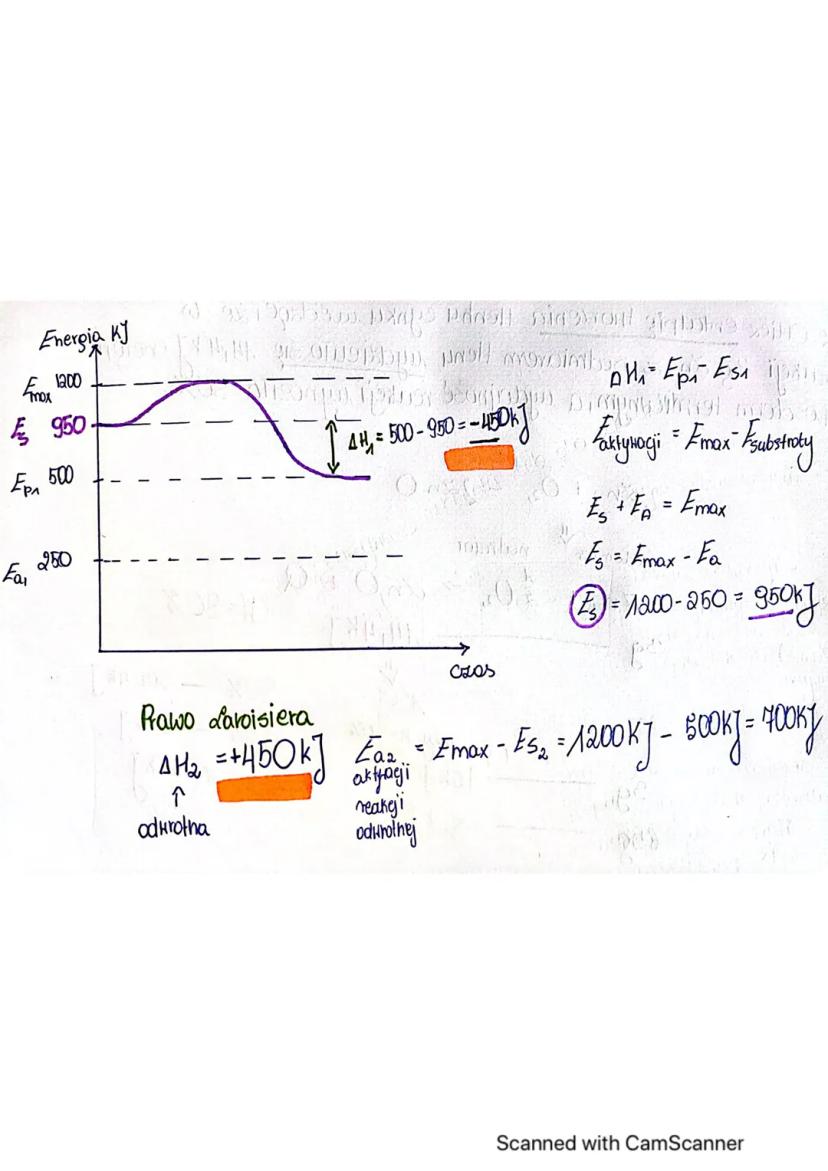 Energia kJ
Emax 1200
Es 950
ΔH₁ = 500 - 950 = -450kJ
Ep₁ 500
Ea₁ 250
czas
ΔH₁ = Ep₁ - Es₁
Eaktywacji = Emax - Esubstraty
Es + EA = Emax
Es = Emax - Ea
Es = 1200 - 250 = 950kJ
Prawo Lavoisiera
ΔH₂ = +450kJ
↑
odwrotna
Ea₂ = Emax - Es₂ = 1200kJ - 500kJ = 700kJ
aktywacji
reakcji
odwrotnej
Scanned with CamScanner